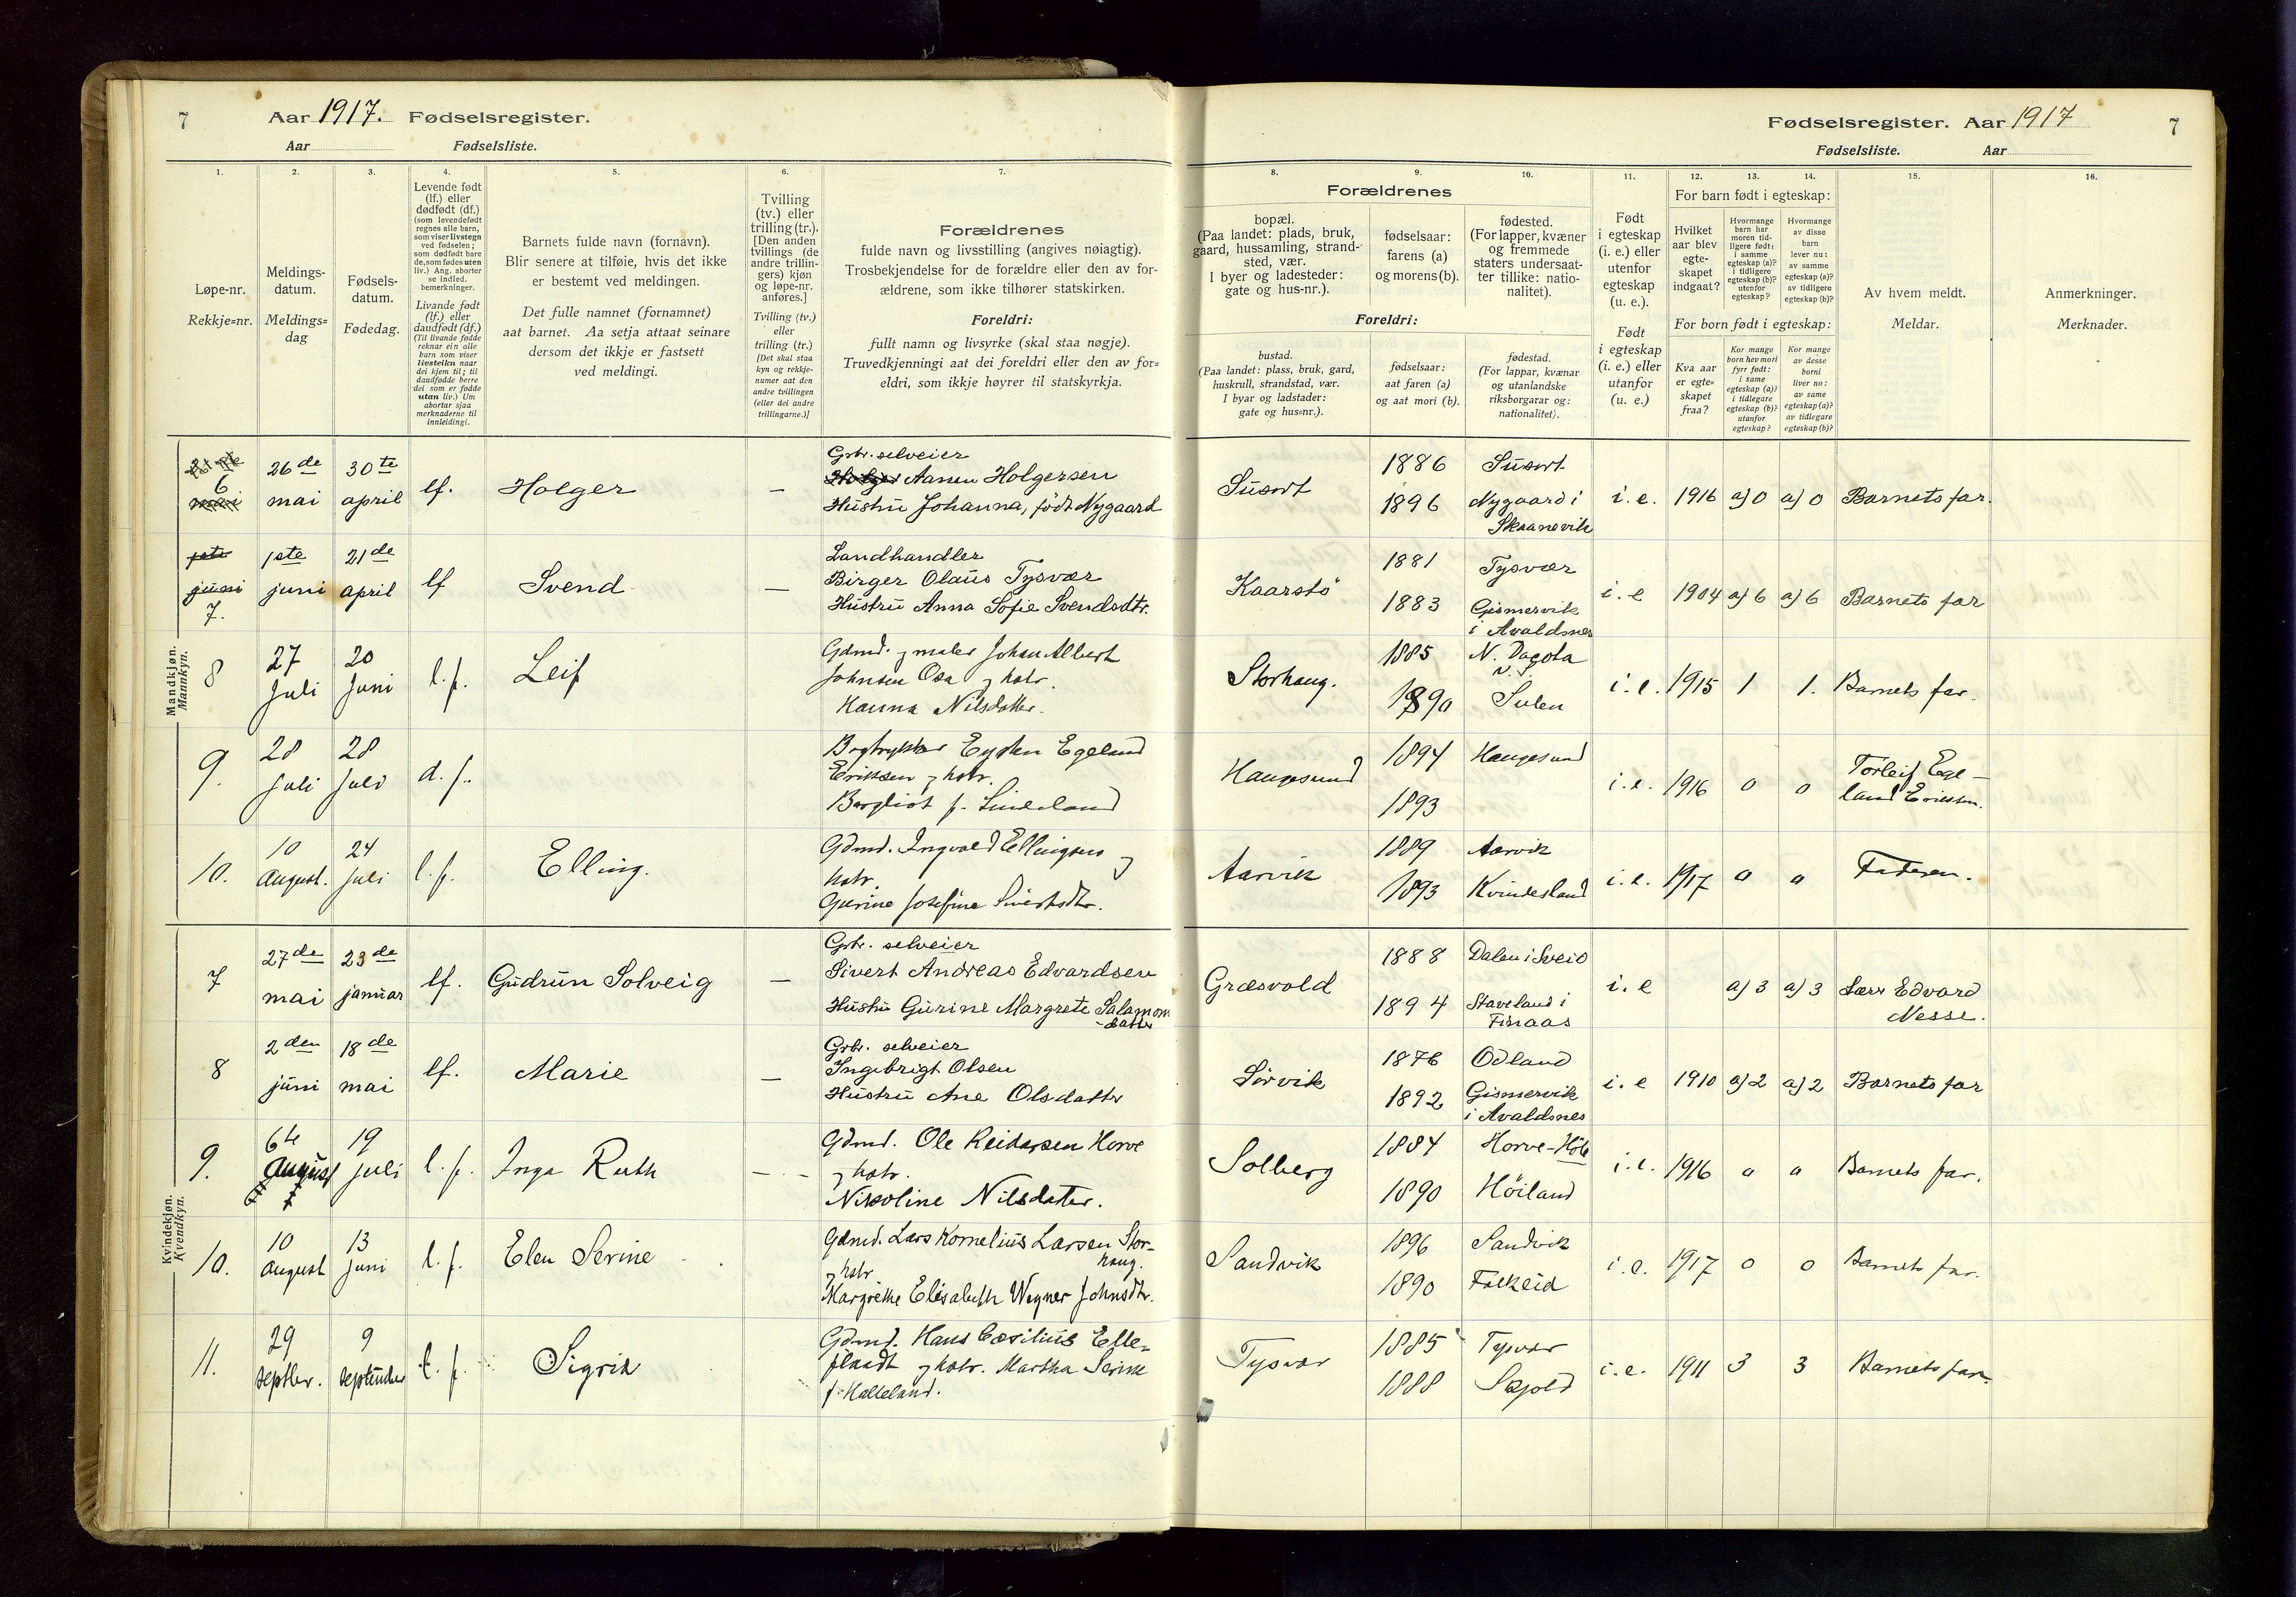 7 Aar 1917. Fødselsregister.
Aar Fødselsliste.
Fødselsregister. Aar 1917 7
Fødselsliste. Aar
1. 2. 3. 4. 5. 6. 7.
Løpe-nr.
Rekkje=nr.
Meldings-
datum.
Meldings=
dag
Fødsels-
datum.
Fødedag.
Levende født
(lf.) eller
dødfødt (df.)
(som levendefødt
regnes alle barn,
som viser livstegn
ved fødselen;
som dødfødt bare
de, som fødes uten
liv.) Ang. aborter
se indled.
bemerkninger.
Livande født
(lf.) eller
daudfødt (df.)
(Til livande fødde
reknar ein alle
barn som viser
livsteikn naar
dei kjem til; til
daudfødde berre
dei som er fødde
utan liv.) Um
abortar sjaa
merknaderne til
innleidingi.
Barnets fulde navn (fornavn).
Blir senere at tilføie, hvis det ikke
er bestemt ved meldingen.
Det fulle namnet (fornamnet)
aat barnet. Aa setja attaat seinare
dersom det ikkje er fastsett
ved meldingi.
Tvilling
(tv.) eller
trilling (tr.).
[Den anden
tvillings (de
andre trillin-
gers) kjøn
og løpe-nr.
anføres.]
Tvilling (tv.)
eller
trilling (tr.)
[Det skal staa
kyn og rekkje-
numer aat den
andre tvillingen
(eller dei andre
trillingarne.)]
Forældrenes
fulde navn og livsstilling (angives nøiagtig).
Trosbekjendelse for de forældre eller den av for-
ældrene, som ikke tilhører statskirken.
Foreldri:
fullt namn og livsyrke (skal staa nøgje).
Truvedkjenningi aat dei foreldri eller den av for=
eldri, som ikkje høyrer til statskyrkja.
8. 9. 10. 11. 12. 13. 14. 15. 16.
Forældrenes
bopæl.
(Paa landet: plads, bruk,
gaard, hussamling, strand-
sted, vær.
I byer og ladesteder:
gate og hus-nr.).
Foreldri:
bustad.
(Paa landet: plass, bruk, gard,
huskrull, strandstad, vær.
I byar og ladstader:
gate og hus=nr.).
fødselsaar:
farens (a)
og morens (b).
fødselsaar:
aat faren (a)
og aat mori (b).
fødested.
(For lapper, kvæner
og fremmede
staters undersaat-
ter tillike: natio-
nalitet).
fødestad.
(For lappar, kvænar
og utanlandske
riksborgarar og:
nationalitet).
Født
i egteskap
(i. e.) eller
utenfor
egteskap
(u. e.).
Født
i egteskap
(i. e.) eller
utanfor
(u. e.)
For barn født i egteskap:
Hvilket
aar blev
egte-
skapet
indgaat?
Hvormange
barn har
moren tid-
ligere født:
i samme
egteskap (a)?
i tidligere
egteskap (b)?
utenfor
egteskap?
Hvormange
av disse
barn
lever nu:
av samme
egteskap (a)?
av tidligere
egteskap (b)?
For born født i egteskap:
Kva aar
er egte=
skapet
fraa?
Kor mange
born hev mori
fyrr født:
i same
egteskap (a)?
i tidlegare
egteskap (b)?
utanfor
egteskap?
Kor mange
av desse
borni
liver no:
av same
egteskap (a)?
av tidlegare
egteskap (b)?
Av hvem meldt.
Meldar.
Anmerkninger.
Merknader.
Mandkjøn.
Mannkyn.
6 26de mai 30te april lf. Holger —
Grbr. selveier
Aanen Holgersen
Hustru Johanna, født Nygaard
Susort 1886 Susort
1896 Nygaard i
Skaanevik
i. e. 1916 a) 0 a) 0 Barnets far.
7. 1ste juni 21de april lf Svend —
Landhandler
Birger Olaus Tysvær
Hustru Anna Sofie Svendsdtr.
Kaarstö 1881 Tysvær
1883 Gismervik
i Avaldsnes
i. e 1904 a) 6 a) 6 Barnets far
8 27 Juli 20 Juni l. f. Leif
Gdmd. og maler Johan Albert
Johnsen Osa og hstr.
Hanna Nilsdatter.
Storhaug. 1885 N. Dacota
1890 Sulen
i. e. 1915 1 1. Barnets far.
9. 28 Juli 28 Juli d. f.
Bogtrykker Eysten Egeland
Eriksen og hstr.
Bergliot f.
Haugesund 1894 Haugesund
1893
i. e. 1916 0 0 Torleif Ege-
land Eriksen.
10. 10 August. 24 Juli l. f. Elling.
Gdmd. Ingvald Ellingsen og
hstr.
Gurine Josefine Sivertsdtr.
Aarvik 1889 Aarvik
1893 Kvindesland
i. e. 1917 0 0 Faderen.
Kvindekjøn.
Kvendkyn.
7 27de mai 23de januar lf. Gudrun Solveig —
Grbr. selveier
Sivert Andreas Edvardsen
Hustru Gurine Margrete Salamon
-datter
Græsvold 1888 Dalen i Sveio
1894 Staveland i
Finaas
i. e a) 3 a) 3 Lærer Edvard
Nesse.
8 2den juni 18de mai lf. Marie —
Grbr. selveier
Ingebrigt Olsen
Hustru Ane Olsdatter
Sørvik 1876 Odland
1892 Gismervik
i Avaldsnes
i. e 1910 a) 2 a) 2 Barnets far
9. 6te August 19 Juli l. f. Inga Ruth —
Gdmd. Ole Reidarsen Horve
og hstr.
Nikoline Nilsdatter.
Solberg 1884 Horve-Höle
1890 Höiland
i. e. 1916 0 0 Barnets far.
10. 10 August 13 Juni l. f. Elen Serine
Gdmd. Lars Kornelius Larsen Stor-
haug.
og hstr
Margrethe Elisabeth Wegner Johnsdtr.
Sandvik 1896 Sandvik
1890 Falkeid
i. e. 1917 0 0 Barnets far.
11. 29 septbr. 9 september l. f. Sigrid
Gdmd. Hans Cæsilius Elle-
flaadt og hstr. Martha Serine
f. Halleland.
Tysvær 1885 Tysvær
1888 Skjold
i. e. 1911 3 3 Barnets far.